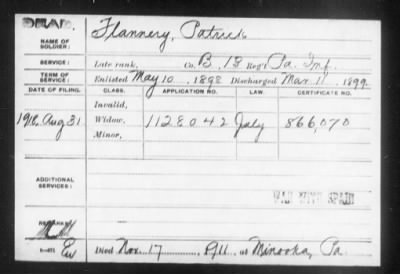 DEAD.
NAME OF SOLDIER: Flannery, Patrick
SERVICE: Late rank, Co. B, 13 Reg't Pa. Inf.
TERM OF SERVICE: Enlisted May 10, 1898 Discharged Mar. 11, 1899.
DATE OF FILING. CLASS. APPLICATION NO. LAW. CERTIFICATE NO.
Invalid,
1912, Aug 31 Widow, 1128042 July 866,070
Minor,
ADDITIONAL SERVICES:
WAR WITH SPAIN
REMARKS:
Died Nov. 17, 1911, at Minooka, Pa.